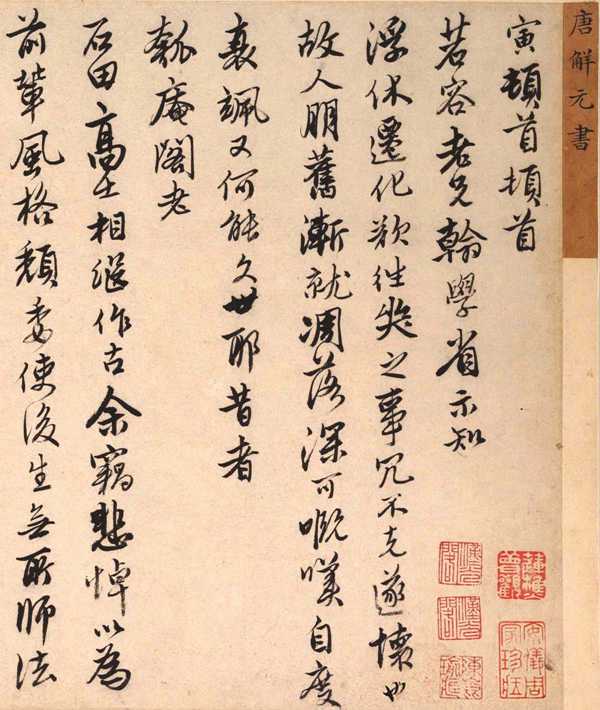 唐解元書
寅頓首頓首
若容老兄翰學省示知
浮休遷化欲往哭之事冗不克遂懷也
故人朋舊漸就凋落深可嘅嘆自度
衰颯又何能久世耶昔者
瓠庵閣老
石田高士相繼作古余竊悲悼以為
前輩風格頹委使後生無所師法